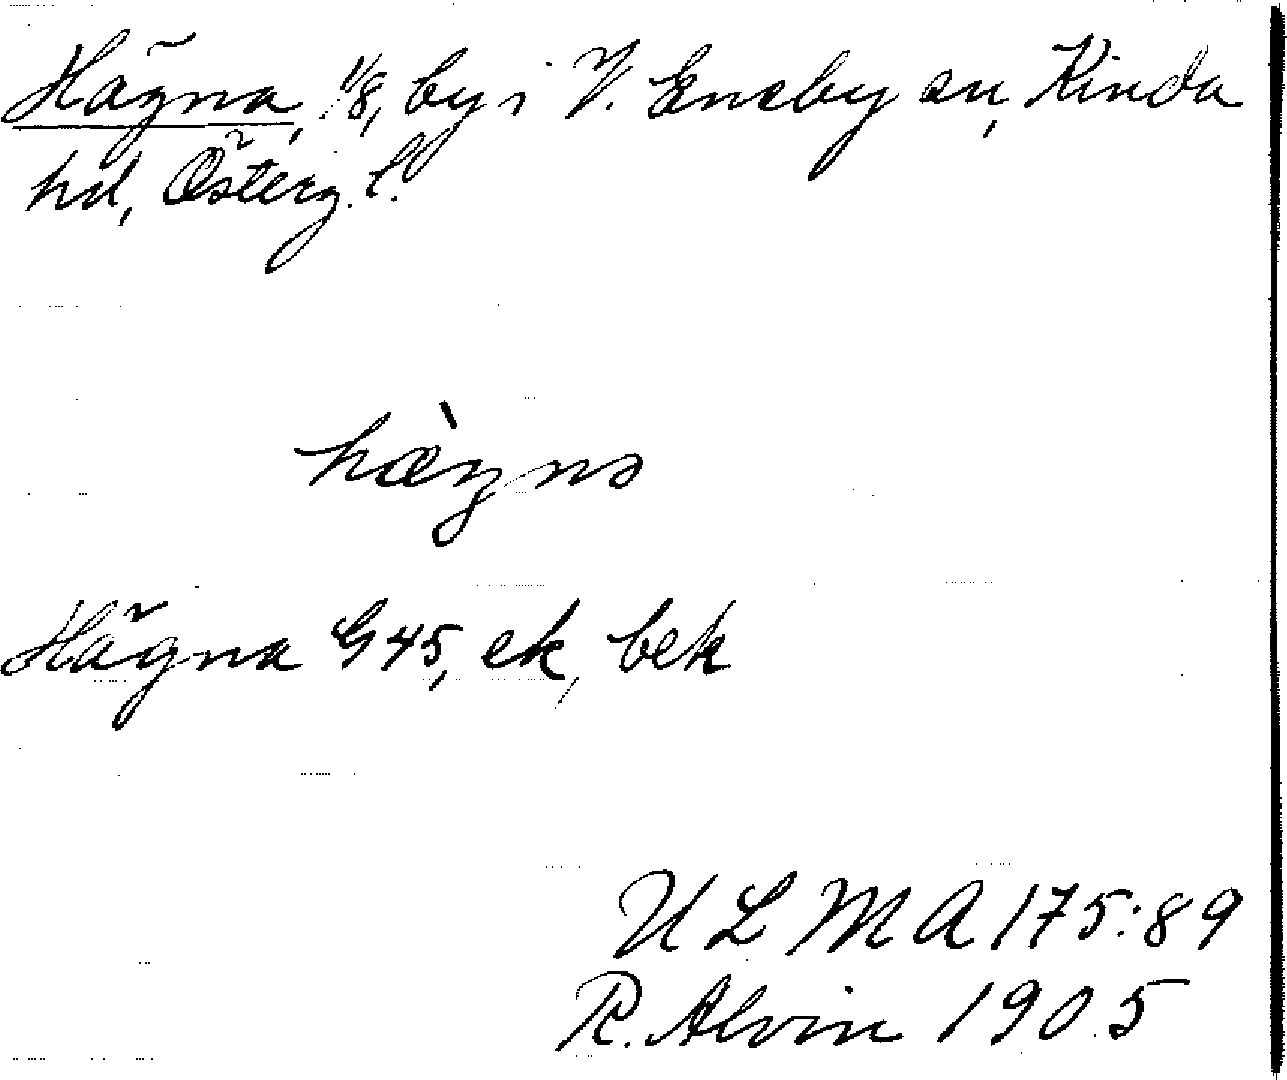 Hägna, 1/8, by i V. Eneby sn, Kinda
hd, Österg. l.
hæ̀gna
Hägna G45, ek, bek
ULMA 175:89
R. Alvin 1905